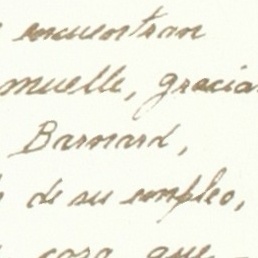 encuentran
muelle, gracias
Barnard,
de su empleo,
cosa que